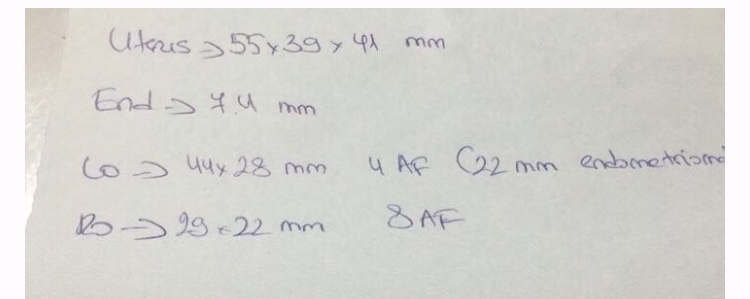 Uterus → 55 x 39 x 41 mm
End → 7.4 mm
LO → 44 x 28 mm 4 AF (22 mm endometrioma
RO → 29 x 22 mm 8 AF